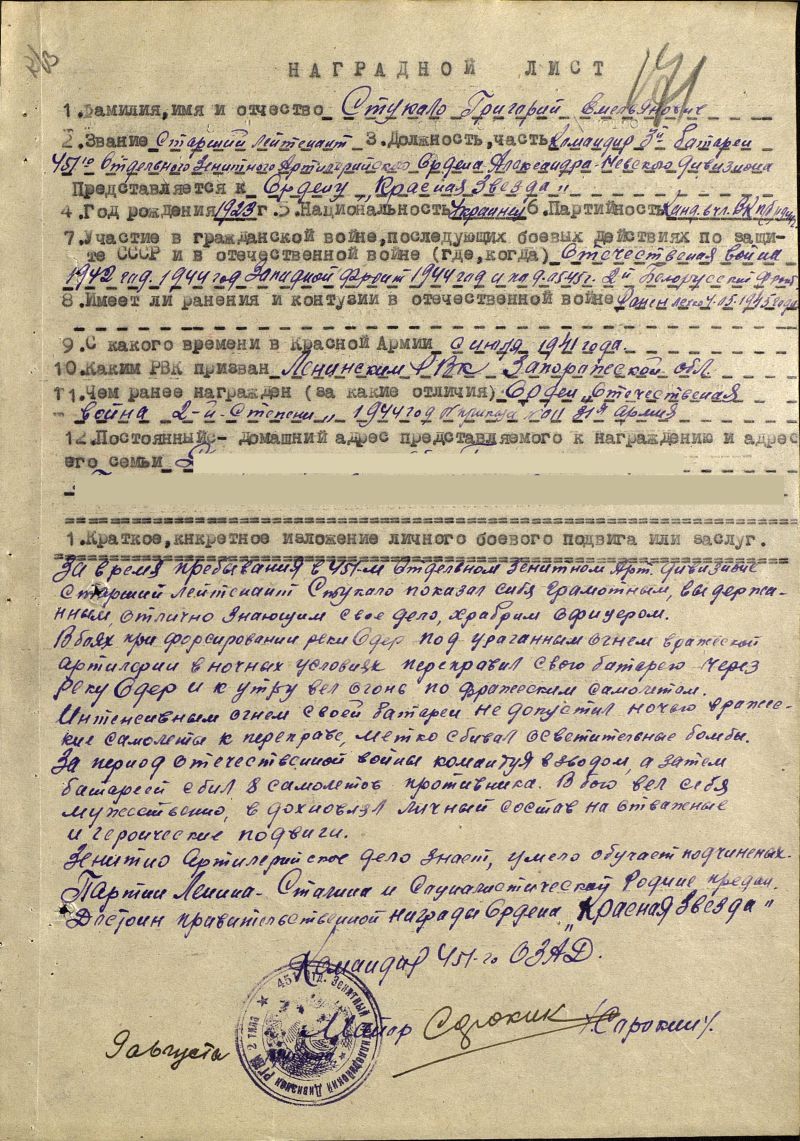 171
НАГРАДНОЙ ЛИСТ
1.Фамилия,имя и отчество Стукало Григорий Емельянович
2.Звание Старший лейтенант 3.Должность,часть Командир 3й батареи
451го Отдельного Зенитного Артилерийского Ордена Александра-Невского дивизиона
Представляется к Ордену „Красная Звезда"
4.Год рождения 1923 г. 5.Национальность Украинец 6.Партийность Канд. в чл. ВКП(б)
7.Участие в гражданской войне,последующих боевых действиях по защи-
те СССР и в отечественной войне (где,когда) Отечественая война
1942 год. 1944 год Западной Фронт 1944 год и по 9.05 45г. 2й Белорусский Фронт
8.Имеет ли ранения и контузии в отечественной войне Ранен легко 4.05.1945 года
9.С какого времени в Красной Армии с июля 1941 года.
10.Каким РВК призван Ленинским РВК Запорожеской обл
11.Чем ранее награжден (за какие отличия) Орден „Отечественая
война 2-й-Степени" 1944 год 31й армия
12.Постоянный- домашний адрес представляемого к награждению и адрес
его семьи
1.Краткое,кнкретное изложение личного боевого подвига или заслуг.
За время пребывания в 451-м отдельном зенитном Арт. дивизионе
Старший лейтенант Стукало показал себя грамотным, выдержа-
нным, отлично знающим свое дело, храбрим офицером.
В боях при форсировании реки Одер под ураганным огнем вражеской
артилерии в ночных условиях переправил свою батарею через
реку Одер и к утру вел огонь по вражеским самолетом.
Интенсивным огнем своей батареи не допустил ночью вражес-
кие самолеты к переправе, метко сбивал осветительные бомбы.
За период отечественной войны командуя взводом, а затем
батареей сбил 8 самолетов противника. В бою вел себя
мужественно, вдохновлял личный состав на отважные
и героические подвиги.
Зенитно Артилерийское дело знает, умело обучает подчиненых.
Партии Ленина-Сталина и Социалистической Родине предан.
Достоин правительственной награды Ордена „Красная Звезда"
Командир 451-го ОЗАД.
Майор Сорокин /Сорокин/.
9 августа
451 Отд. Зенитный Артиллерийский Дивизион РГВК